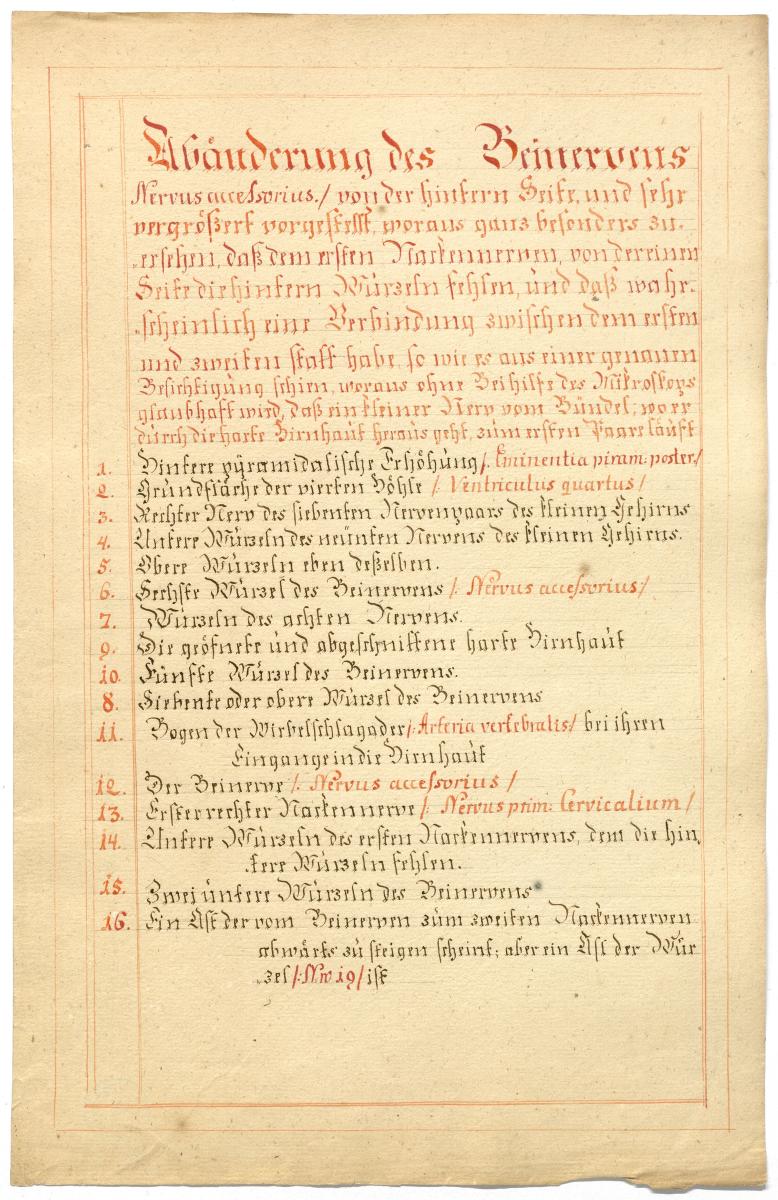 Abänderung des Beinervens
Nervus accessorius./ von der hintern Seite, und sehr
vergrößert vorgestellt, woraus ganz besonders zu-
„ersehen, daß dem ersten Nackennerven, von der einen
Seite die hintern Würzeln fehlen, und daß wahr-
„scheinlich eine Verbindung zwischen dem ersten
und zweiten statt habe, so wie es aus einer genauen
Besichtigung schien, woraus ohne Beihilfe des Mikroskops
glaubhaft wird, daß ein kleiner Nerv vom Bündel; wo er
durch die harte Hirnhaut heraus geht, zum ersten Paare läuft
1. Hintere pyramidalische Erhöhung /: Eminentia piram: poster:/
2. Grundfläche der vierten Höhle /: Ventriculus quartus/
3. Rechter Nerv des siebenten Nervenpaars des kleinen Gehirns
4. Untere Würzeln des neünten Nervens des kleinen Gehirns.
5. Obere Würzeln eben deßelben.
6. Sechste Würzel des Beinervens /: Nervus accessorius:/
7. Würzeln des achten Nervens.
9. Die geöfnete und abgeschnittene harte Hirnhaut
10. Fünfte Würzel des Beinervens.
8. Siebente oder obere Würzel des Beinervens
11. Bogen der Wirbelschlagader /: Arteria vertebralis/ bei ihren
Eingange in die Hirnhaut
12. Der Beinerve /: Nervus accessorius /
13. Erster rechter Nackennerve /: Nervus prim: Cervicalium /
14. Untere Würzeln des ersten Nackennervens, dem die hin
„tere Würzeln fehlen.
15. Zwei untere Würzeln des Beinervens
16. Ein Ast der vom Beinerven zum zweiten Nackennerven
abwärts zu steigen scheint; aber ein Ast der Wür
„zel /: Nro 19/ ist